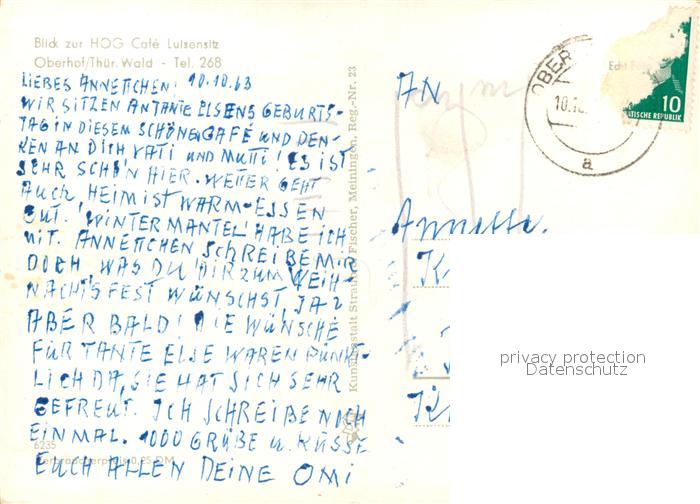 Blick zur HOG Café Luisensitz
Oberhof/Thür. Wald - Tel. 268
LIEBES ANNETTCHEN! 10.10.63
WIR SITZEN AN TANTE ELSENS GEBURTS-
TAG IN DIESEM SCHÖNEN CAFÉ UND DEN-
KEN AN DICH VATI UND MUTTI! ES IST
SEHR SCHÖN HIER. WETTER GEHT
AUCH, HEIM IST WARM - ESSEN
GUT. WINTERMANTEL HABE ICH
MIT. ANNETTCHEN SCHREIBE MIR
DOCH, WAS DU DIR ZUM WEIH-
NACHTSFEST WÜNSCHST, JA?
ABER BALD! DIE WÜNSCHE
FÜR TANTE ELSE WAREN PÜNKT-
LICH DA, SIE HAT SICH SEHR
GEFREUT. ICH SCHREIBE NOCH
EINMAL. 1000 GRÜßE u. KÜSSE
EUCH ALLEN DEINE OMI
6235
Verbraucherpreis 0,25 DM
Kunstanstalt Straub & Fischer, Meiningen. Reg.-Nr. 23
AN
Annette
K
K
OBER
10.10.
a
10
TSCHE REPUBLIK
privacy protection
Datenschutz